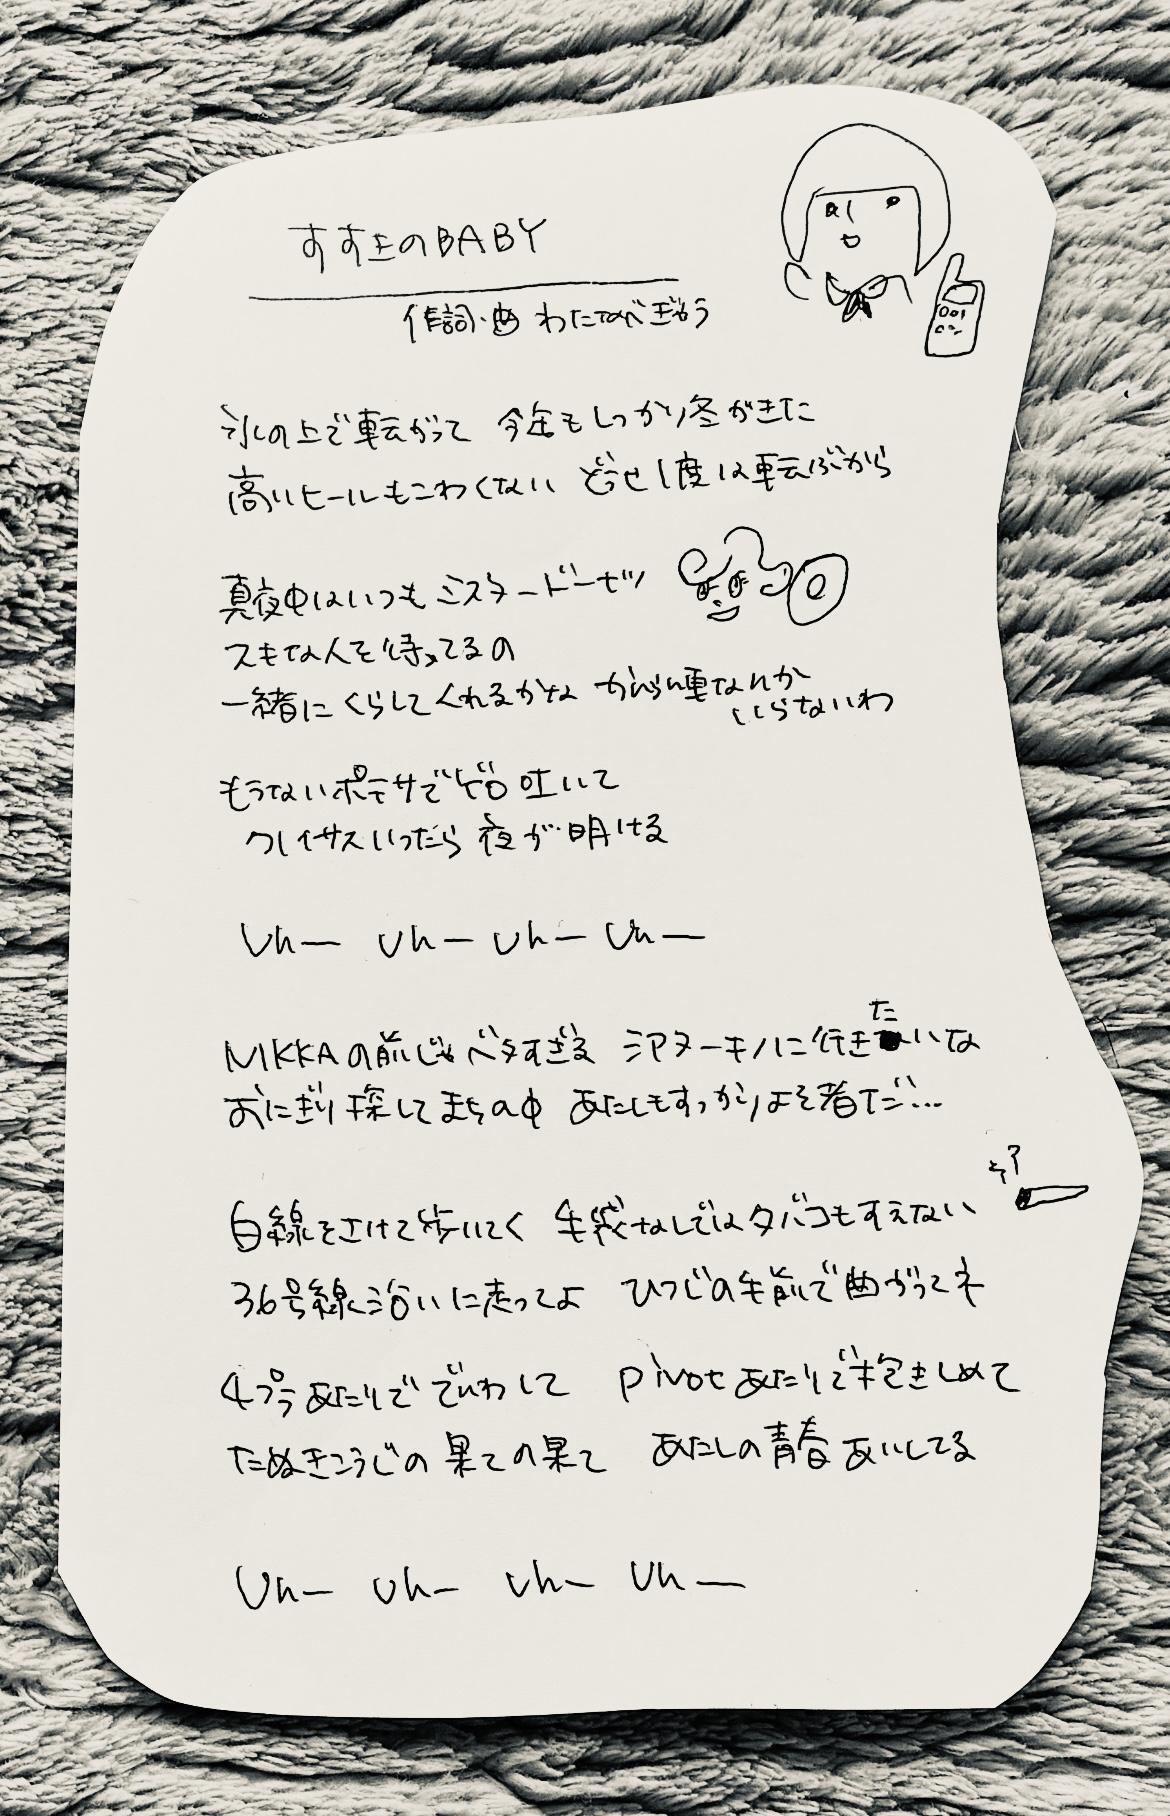 すすきのBABY
作詞・曲 わたなべぎゅう
氷の上で転がって 今年もしっかり冬がきた
高いヒールもこわくない どうせ1度は転ぶから
真夜中はいつもミスタードーナツ
スキな人を待ってるの
一緒にくらしてくれるかな がいら車なんか
いらないわ
もうないポテサでゲロ吐いて
クレイサスいったら夜が明ける
Uh— Uh— Uh— Uh—
NIKKAの前じゃベタすぎる シアターキノに行きたいな
おにぎり探してまちの中 あたしもすっかりよそ者だ…
白線をさけて歩いてく 手袋なしではタバコもすえない
36号線沿いに走ってよ ひつじの手前で曲がってネ
4プラあたりででんわして pivotあたりで抱きしめて
たぬきこうじの果ての果て あたしの青春あいしてる
Uh— Uh— Uh— Uh—